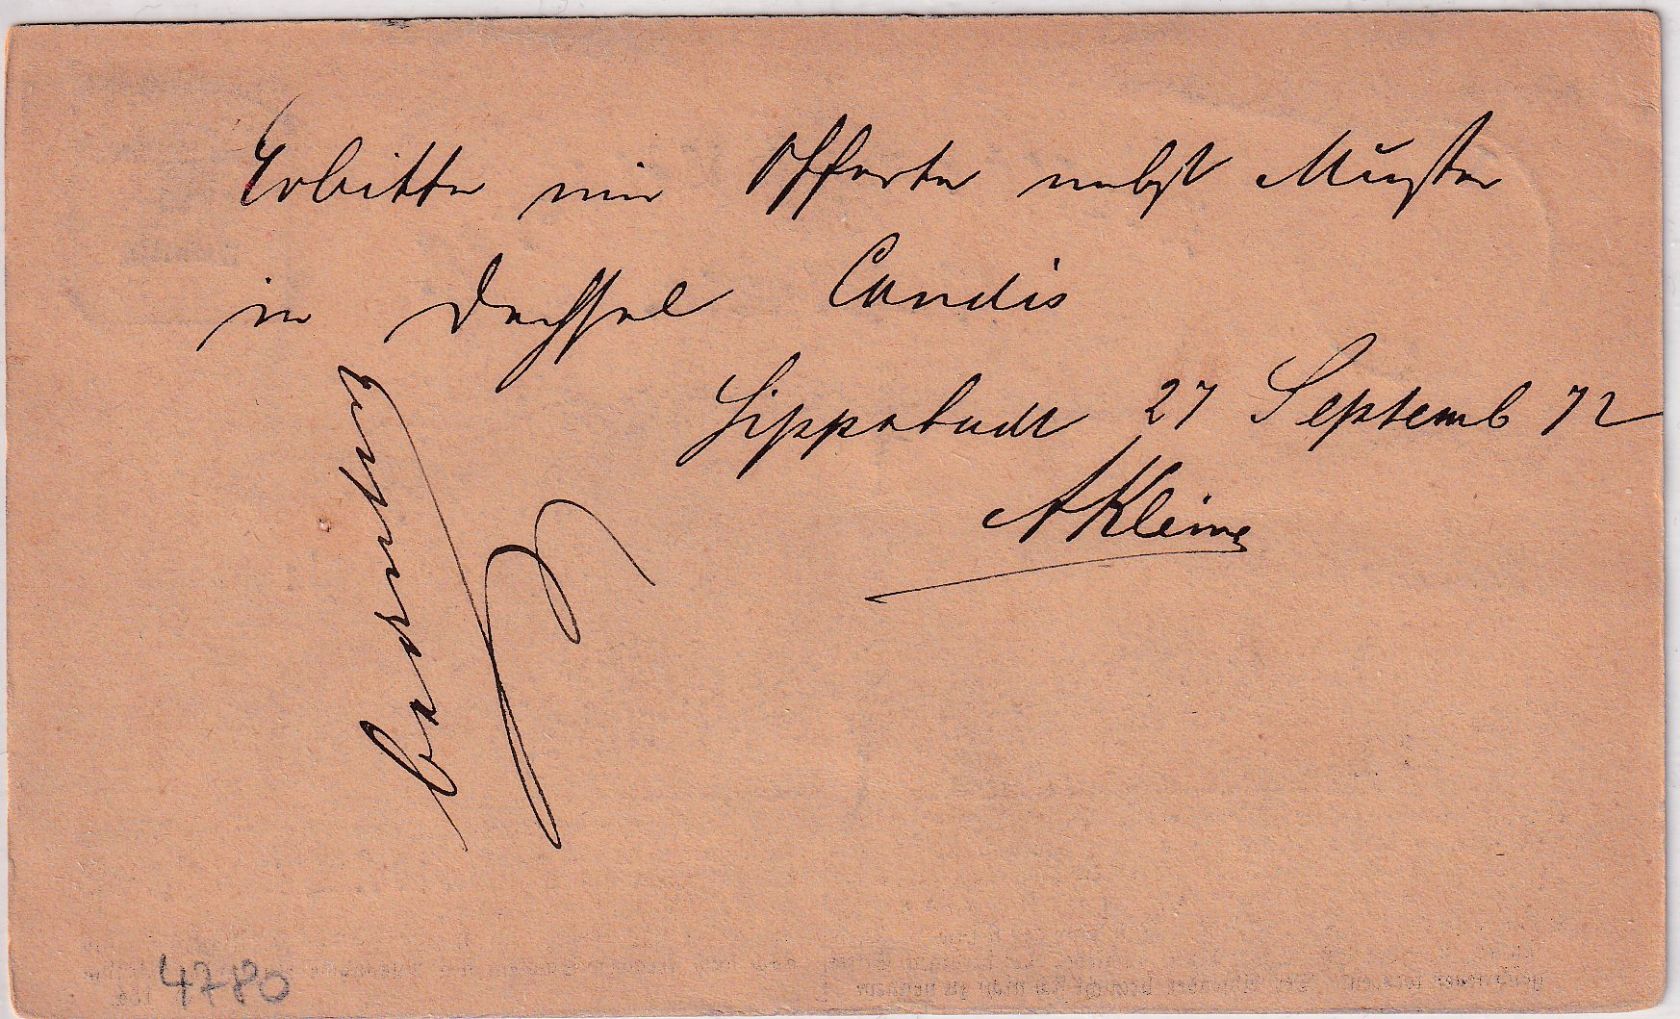 Erbitte mir Offerte nebst Muster
in Candis
Lippstadt 27 Septemb 72
A Kleine
4780